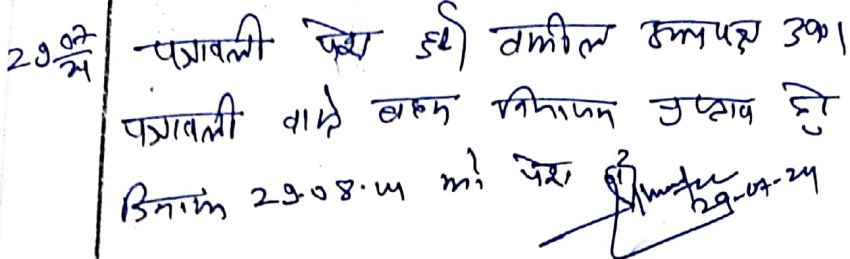 29/07/24 पत्रावली पेश हुई। वकील उभयपक्ष उप०।
पत्रावली वास्ते बहस विभाजन प्रस्ताव हेतु
दिनांक 29.08.24 को पेश हो।
29-07-24